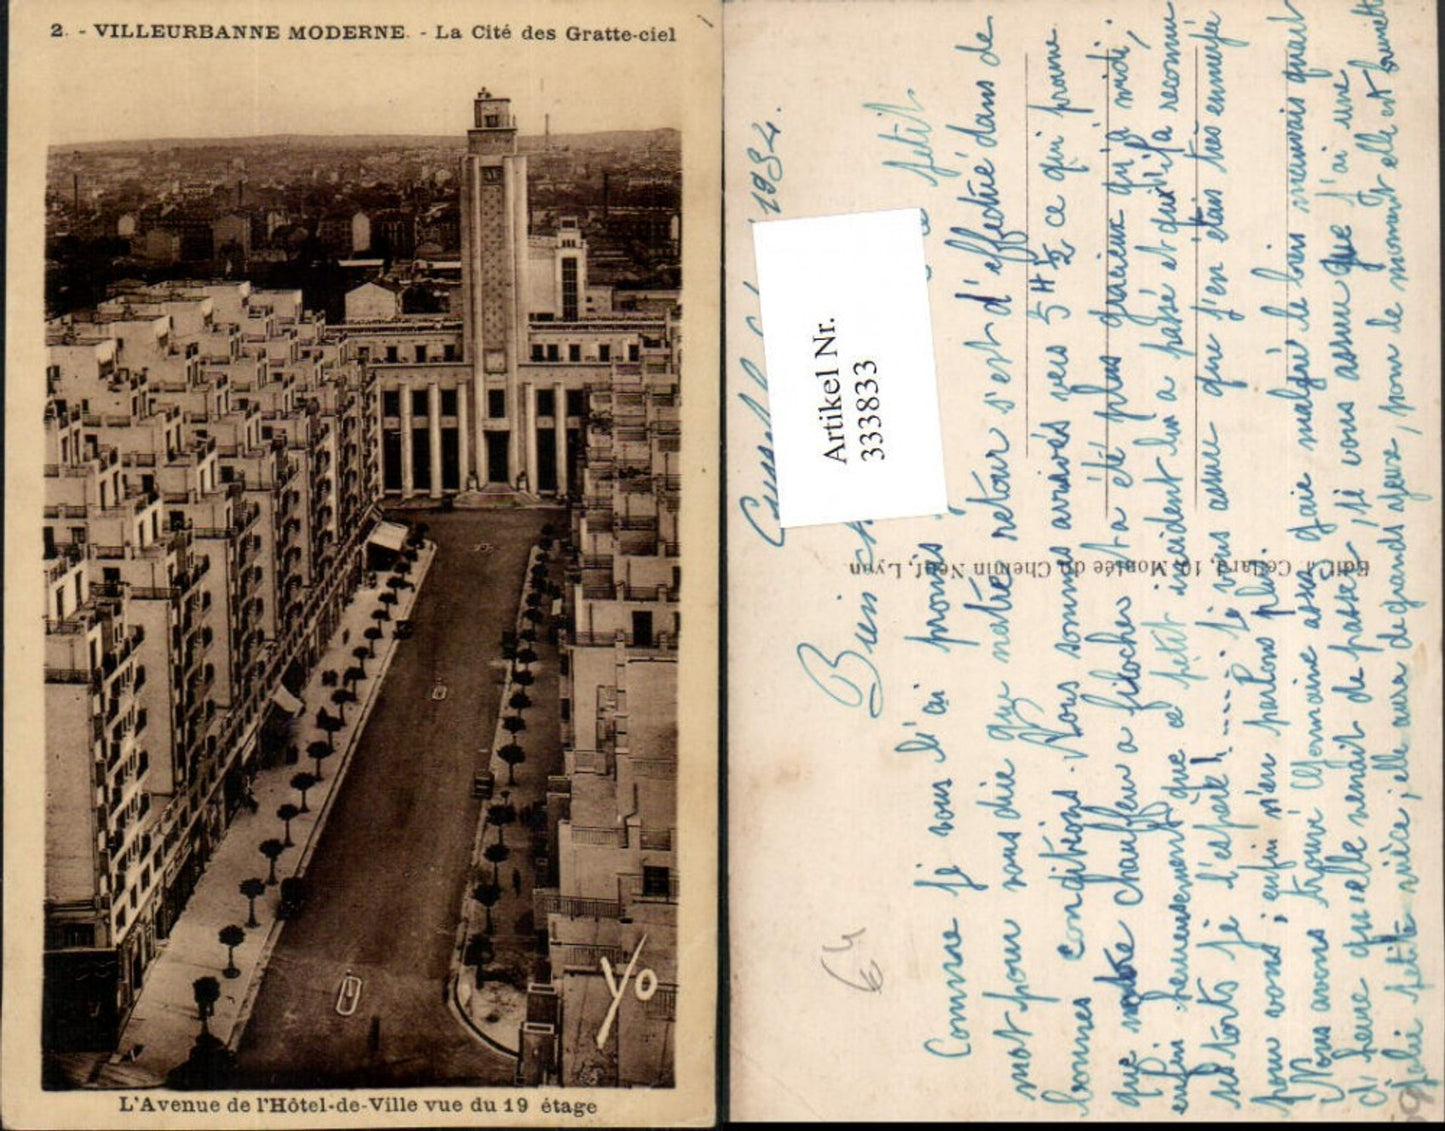 2. - VILLEURBANNE MODERNE. - La Cité des Gratte-ciel
Yo
L'Avenue de l'Hôtel-de-Ville vue du 19 étage
1934.
Artikel Nr.
333833
Bien
petit
Comme je vous l'ai promis
mot pour vous dire que notre retour s'est d'effectué dans de
bonnes conditions. Nous sommes arrivés vers 5 H ½ ce qui prouve
que notre chauffeur a filocher ta été plus gracieux qu'a midi,
enfin heureusement que ce petit incident lui a passé et qu'il a reconnu
ses torts je l'espère! je vous assure que j'en étais très ennuyée
pour vous; enfin n'en parlons plus.
Nous avons trouvé Germaine assez gaie malgré le bien mauvais quart
d'heure qu'elle venait de passer, je vous assure que j'ai une
jolie petite nièce, elle aura de grands yeux, pour le moment elle est brunette
Edit. Cellard, 10, Montée du Chemin Neuf, Lyon